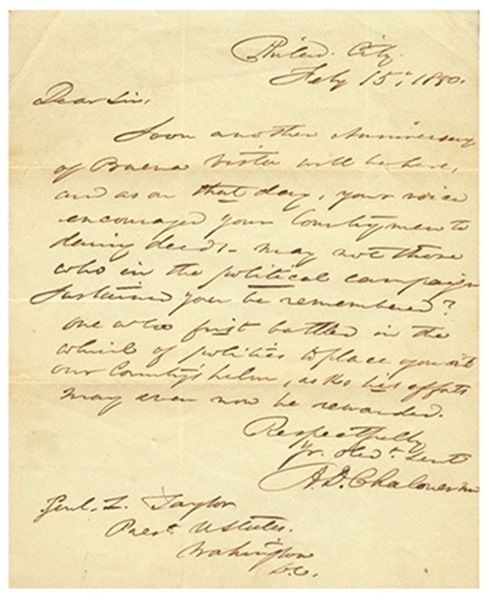 Philad. City.
Feby 15th, 1850.
Dear Sir,
Soon another Anniversary
of Buena Vista will be here,
and as on that day, your voice
encouraged your Countrymen to
daring deeds - may not those
who in the political campaign
sustained you be remembered?
one who first battled in the
whirl of politics to place you at
our Country's helm, asks his efforts
may even now be rewarded.
Respectfully
Yr. Obedt. Servt
A. D. Chaloner
Genl. Z. Taylor
Prest. U States.
Washington
D.C.